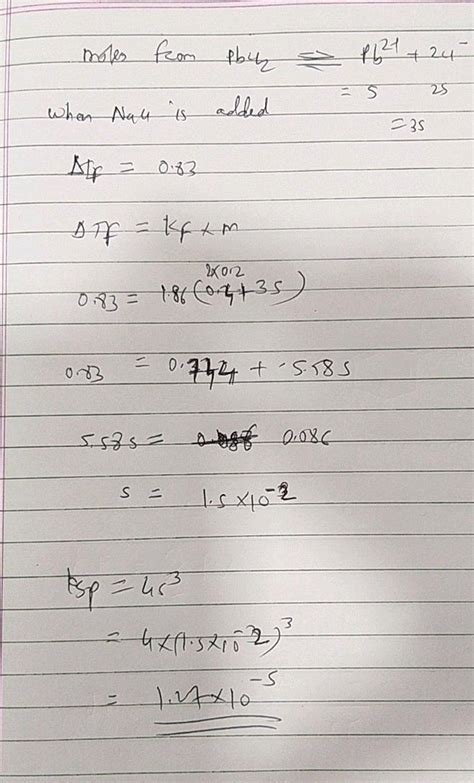 moles from PbCl2 ⇌ Pb2+ + 2Cl-
= S 2S
when NaCl is added
= 3S
ΔTf = 0.83
ΔTf = Kf x m
2x0.2
0.83 = 1.86 (0.2 + 3S)
0.83 = 0.744 + 5.58 S
5.58 S = 0.086
S = 1.5 x 10^-2
Ksp = 4s^3
= 4 x (1.5 x 10^-2)^3
= 1.27 x 10^-5